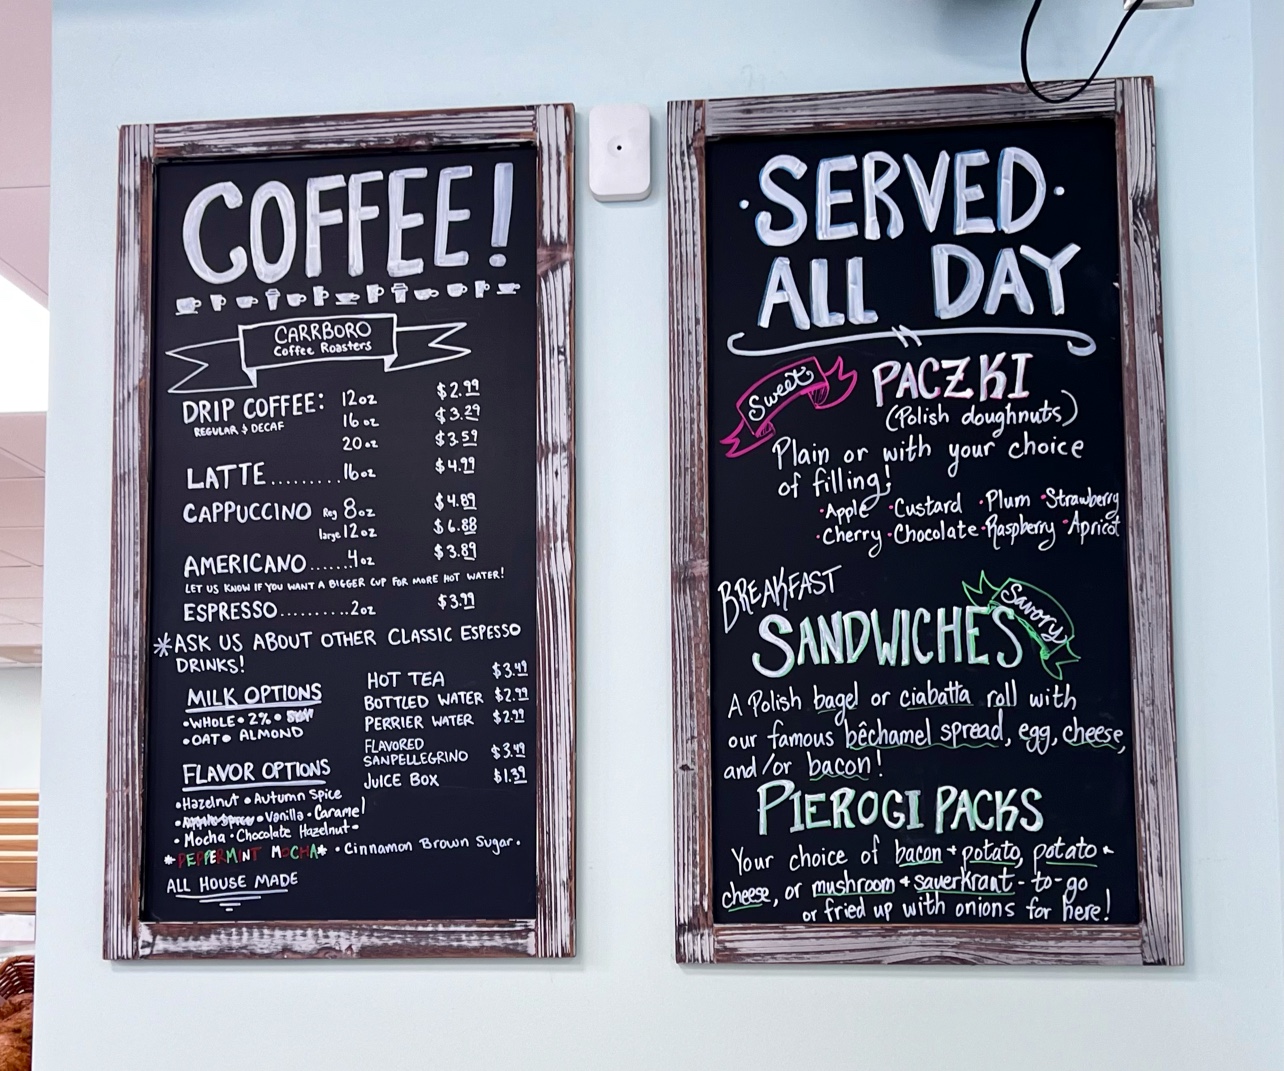 COFFEE!
CARRBORO
Coffee Roasters
DRIP COFFEE: 12oz $2.99
REGULAR & DECAF 16oz $3.29
20oz $3.59
LATTE.........16oz $4.99
CAPPUCCINO Reg 8oz $4.89
large 12oz $6.88
AMERICANO......4oz $3.89
LET US KNOW IF YOU WANT A BIGGER CUP FOR MORE HOT WATER!
ESPRESSO..........2oz $3.99
*ASK US ABOUT OTHER CLASSIC ESPESSO
DRINKS!
MILK OPTIONS
•WHOLE • 2% •
•OAT• ALMOND
FLAVOR OPTIONS
•Hazelnut •Autumn Spice
• •Vanilla •Caramel
• Mocha •Chocolate Hazelnut•
*PEPPERMINT MOCHA* •Cinnamon Brown Sugar.
ALL HOUSE MADE
HOT TEA $3.49
BOTTLED WATER $2.99
PERRIER WATER $2.99
FLAVORED
SANPELLEGRINO $3.49
JUICE BOX $1.39
·SERVED·
ALL DAY
Sweet
PACZKI
(Polish doughnuts)
Plain or with your choice
of filling!
•Apple •Custard •Plum •Strawberry
•Cherry •Chocolate •Raspberry •Apricot
BREAKFAST
SANDWICHES
Savory
A Polish bagel or ciabatta roll with
our famous bêchamel spread, egg, cheese,
and/or bacon!
PIEROGI PACKS
Your choice of bacon + potato, potato +
cheese, or mushroom + sauerkraut - to-go
or fried up with onions for here!